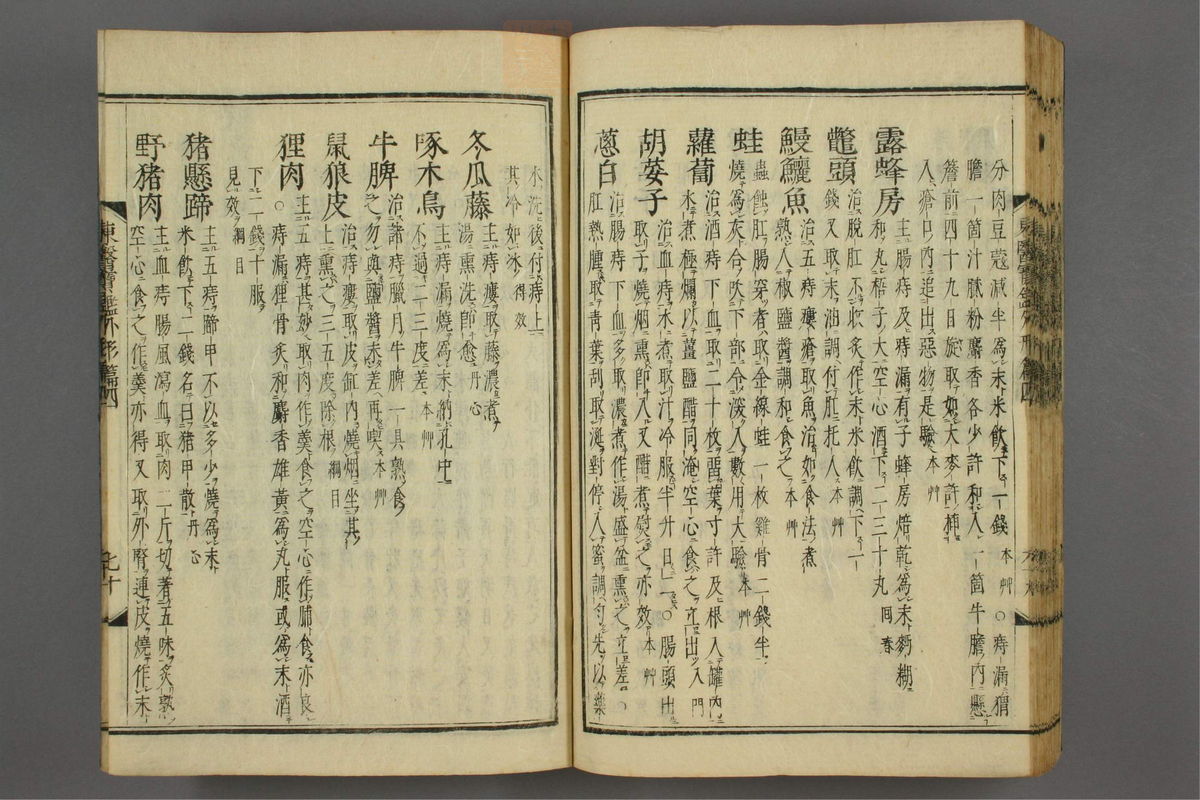 分肉豆蔻減半爲末米飮下一錢本艸○痔漏猬
膽一箇汁膩粉麝香各少許和入一箇牛膽內懸
簷前四十九日旋取如大麥許揷
入瘡口內追出惡物是驗本艸
露蜂房 主腸痔及痔漏有子蜂房焙乾爲末麪糊
和丸梧子大空心酒下二三十丸回春
鼈頭 治脫肛不收炙作末米飮調下一
錢又取末油調付肛托入本艸
鰻鱺魚 治五痔瘻瘡取魚治如食法煮
熟入椒鹽醬調和食之本艸
蛙 蟲蝕肛腸穿者取金線蛙一枚雞骨二錢半
燒爲灰合吹下部令深入數用大驗本艸
蘿蔔 治酒痔下血取二十枚留葉寸許及根入罐內
水煮極爛以薑鹽醋同淹空心食之立出入門
胡荽子 治血痔水煮取汁冷服半升日二○腸頭出
取子燒烟熏卽入又醋煮熨之亦效本艸
葱白 治腸痔下血多取濃煮作湯盛盆熏之立差○
肛熱腫取青葉刮取涎對停入蜜調勻先以藥
水洗後付痔上
其冷如冰得效
冬瓜藤 主痔瘻取藤濃煮
湯熏洗卽愈丹心
啄木鳥 主痔漏燒爲末納孔中
不過二三度差本艸
牛脾 治諸痔臘月牛脾一具熟食
之勿與鹽醬未差再喫本艸
鼠狼皮 治痔瘻取皮缸內燒烟坐其
上熏之三五度除根綱目
狸肉 主五痔甚妙取肉作羹食之空心作脯食亦良
○痔漏狸骨炙和麝香雄黃爲丸服或爲末酒
下二錢十服
見效綱目
猪懸蹄 主五痔蹄甲不以多少燒爲末
米飮下一錢名曰猪甲散丹心
野猪肉 主血痔腸風瀉血取肉二斤切著五味炙
空心食之作羹亦得又取外腎連皮燒作末
東醫寶鑑外形篇四
七十